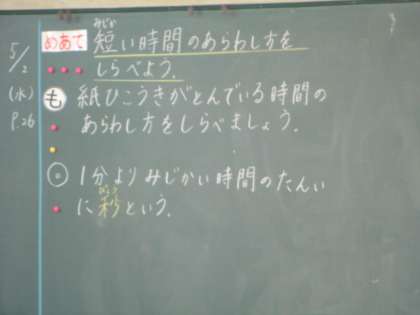 5/2
(水)
P.26
めあて 短い時間のあらわし方を
みじか
しらべよう.
も 紙ひこうきがとんでいる時間の
あらわし方をしらべましょう.
1分よりみじかい時間のたんい
びょう
に秒という.